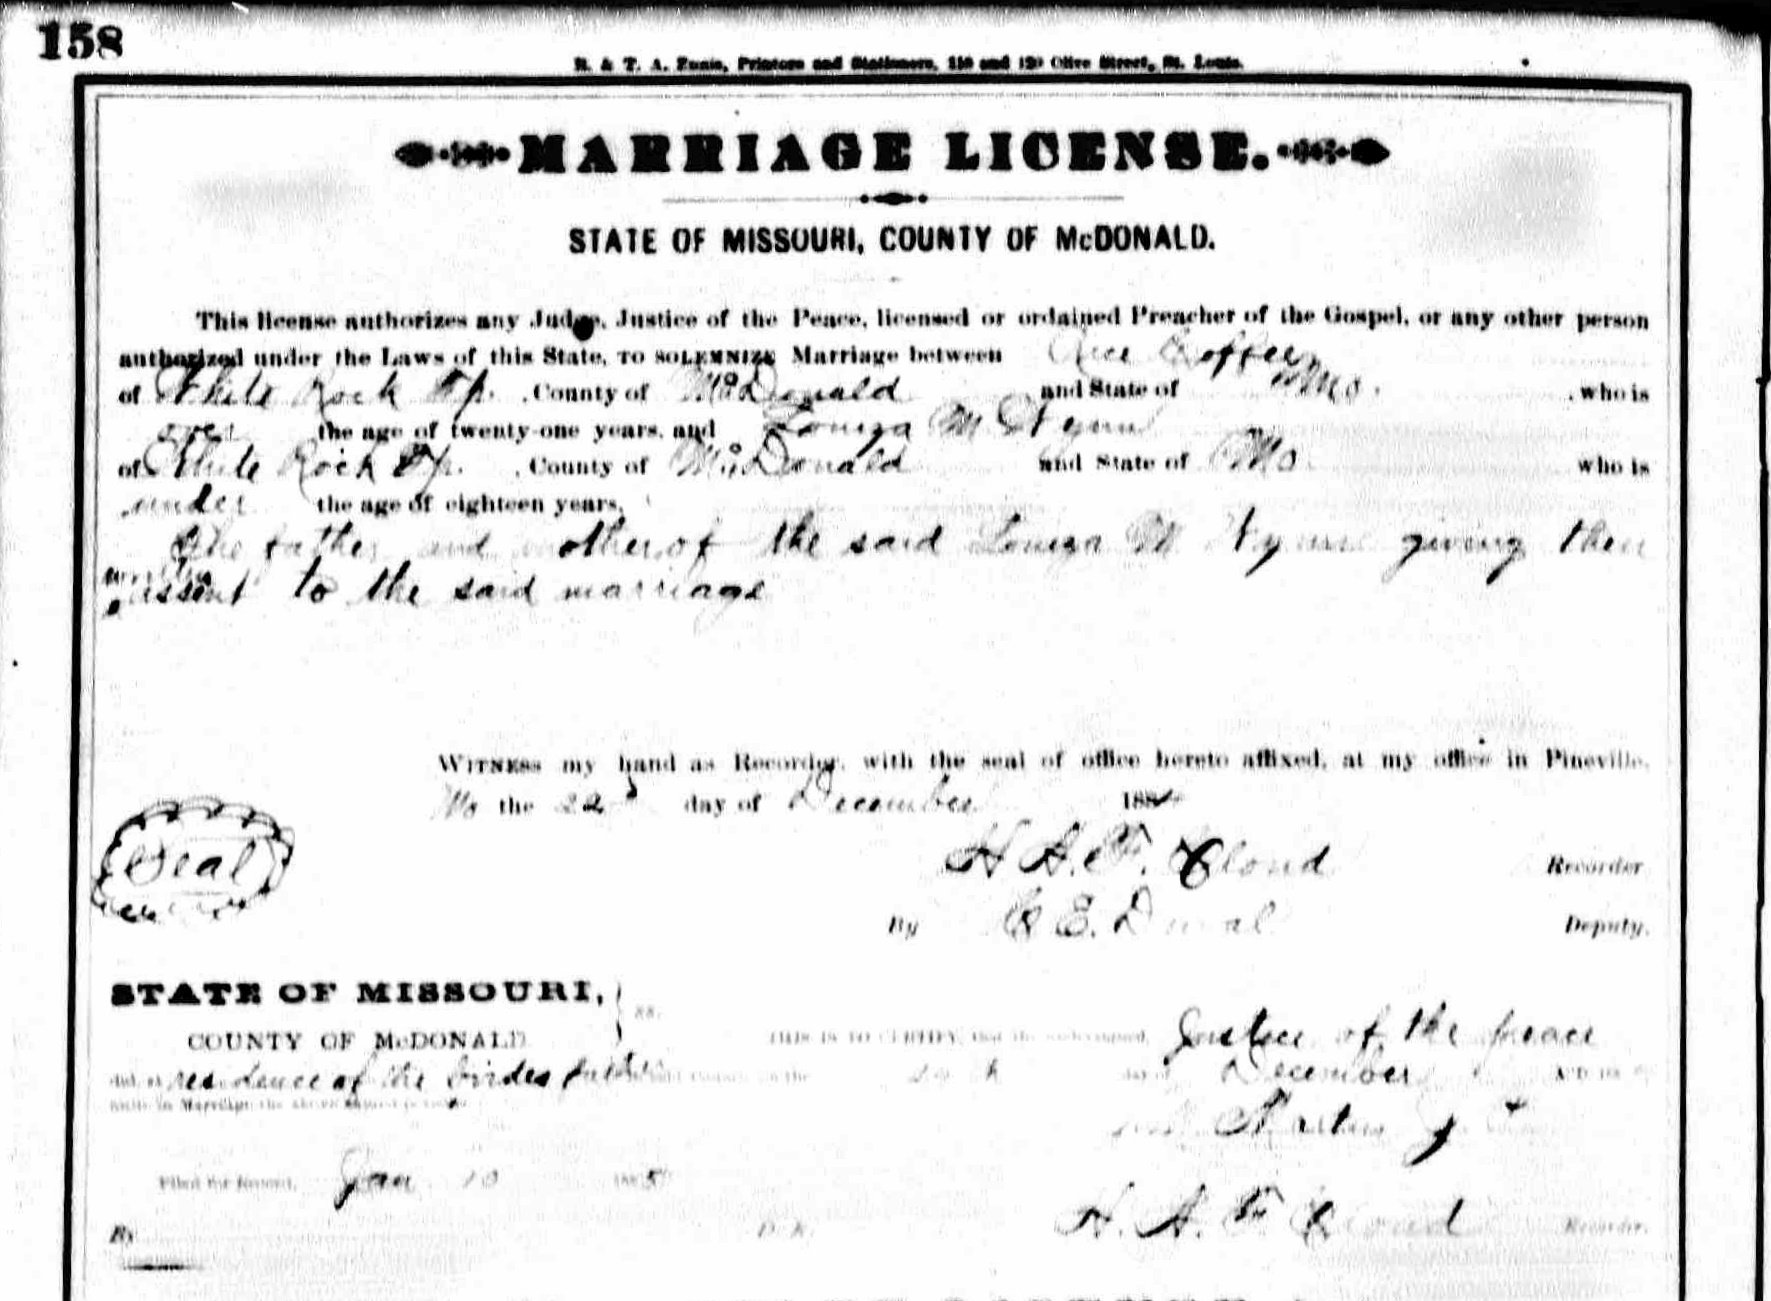 158
R. & T. A. Ennis, Printers and Stationers, 118 and 120 Olive Street, St. Louis.
MARRIAGE LICENSE.
STATE OF MISSOURI, COUNTY OF McDONALD.
This license authorizes any Judge, Justice of the Peace, licensed or ordained Preacher of the Gospel, or any other person
authorized under the Laws of this State, TO SOLEMNIZE Marriage between Rice Coffee
of White Rock Tp. , County of McDonald and State of Mo. , who is
over the age of twenty-one years, and Louiza M
of White Rock Tp. , County of McDonald and State of Mo who is
under the age of eighteen years,
The father and mother of the said Louiza M giving their
written
assent to the said marriage
WITNESS my hand as Recorder, with the seal of office hereto affixed, at my office in Pineville,
Mo the 22d day of December 1884
Seal
H. A. F. Cloud Recorder
By C E. Duval Deputy.
STATE OF MISSOURI, } ss.
COUNTY OF McDONALD THIS IS TO CERTIFY, that the undersigned, Justice of the peace
did, at residence of the birdes father day of December A.D. 188
unite in Marriage the above named persons
Filed for Record, Jan 10 1885
H. A. F. Cloud Recorder.
By D. R.